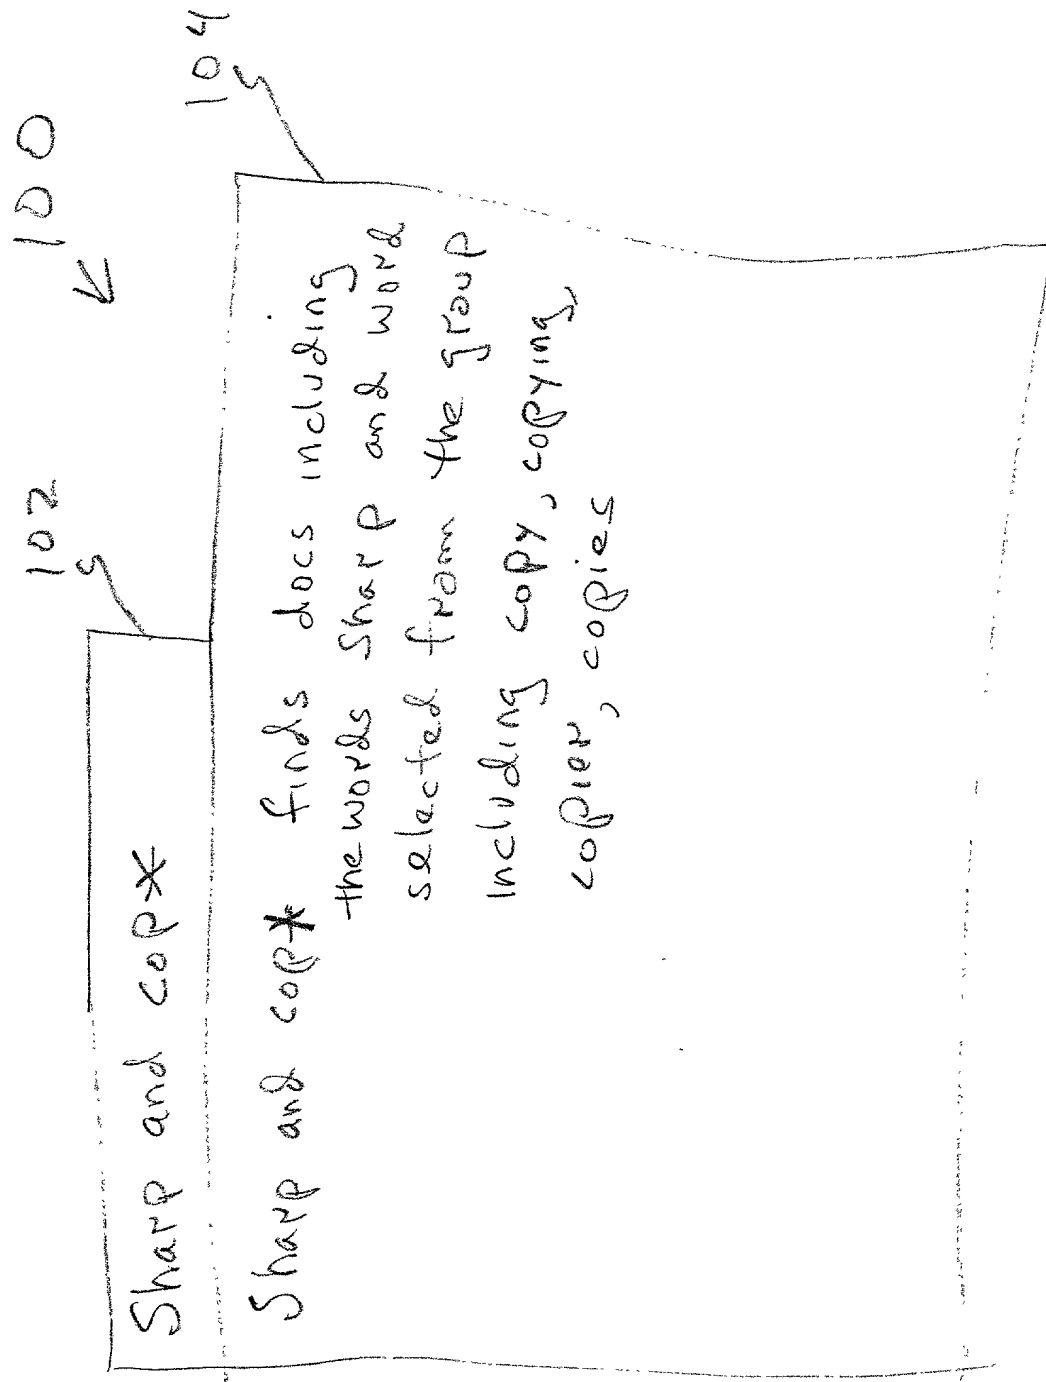 100
102
104
Sharp and cop*
Sharp and cop* finds docs including
the words Sharp and word
selected from the group
including copy, copying,
copier, copies